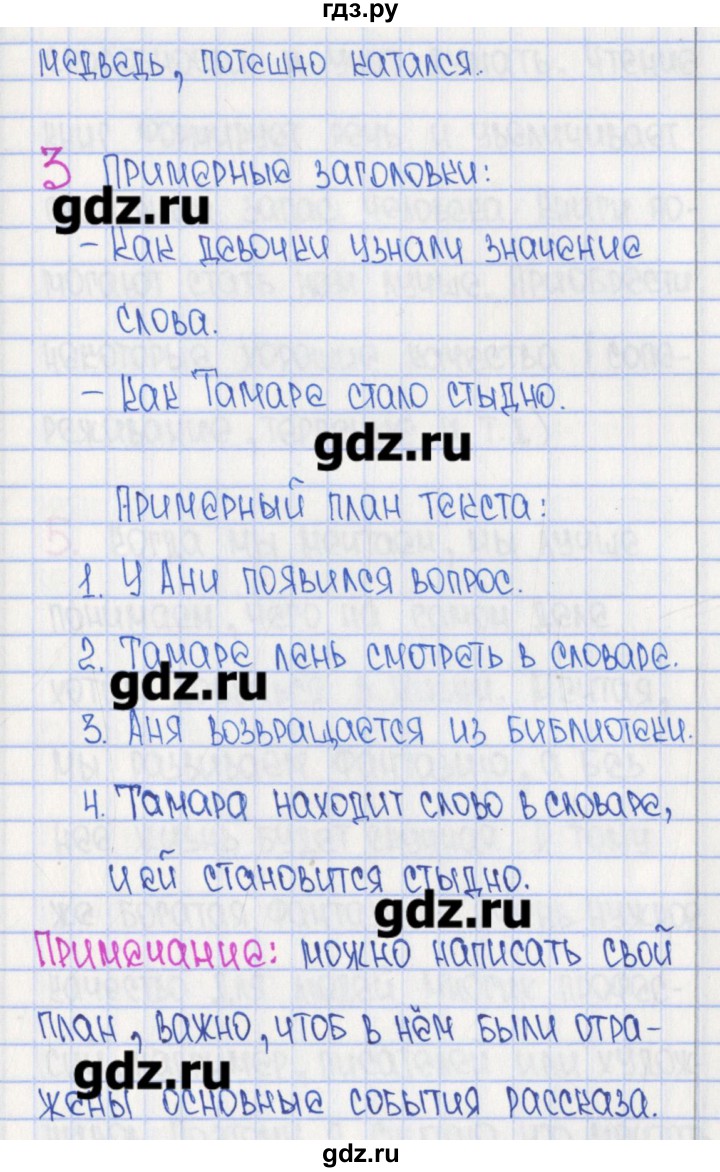 гдз.ру
медведь, потешно катался.
3 Примерные заголовки:
gdz.ru
– Как девочки узнали значение
слова.
– Как Тамаре стало стыдно.
gdz.ru
Примерный план текста:
1. У Ани появился вопрос.
2. Тамаре лень смотреть в словаре.
gdz.ru
3. Аня возвращается из библиотеки.
4. Тамара находит слово в словаре,
и ей становится стыдно.
gdz.ru
Примечание: можно написать свой
план, важно, чтоб в нём были отра-
gdz.ru
жены основные события рассказа.
gdz.ru